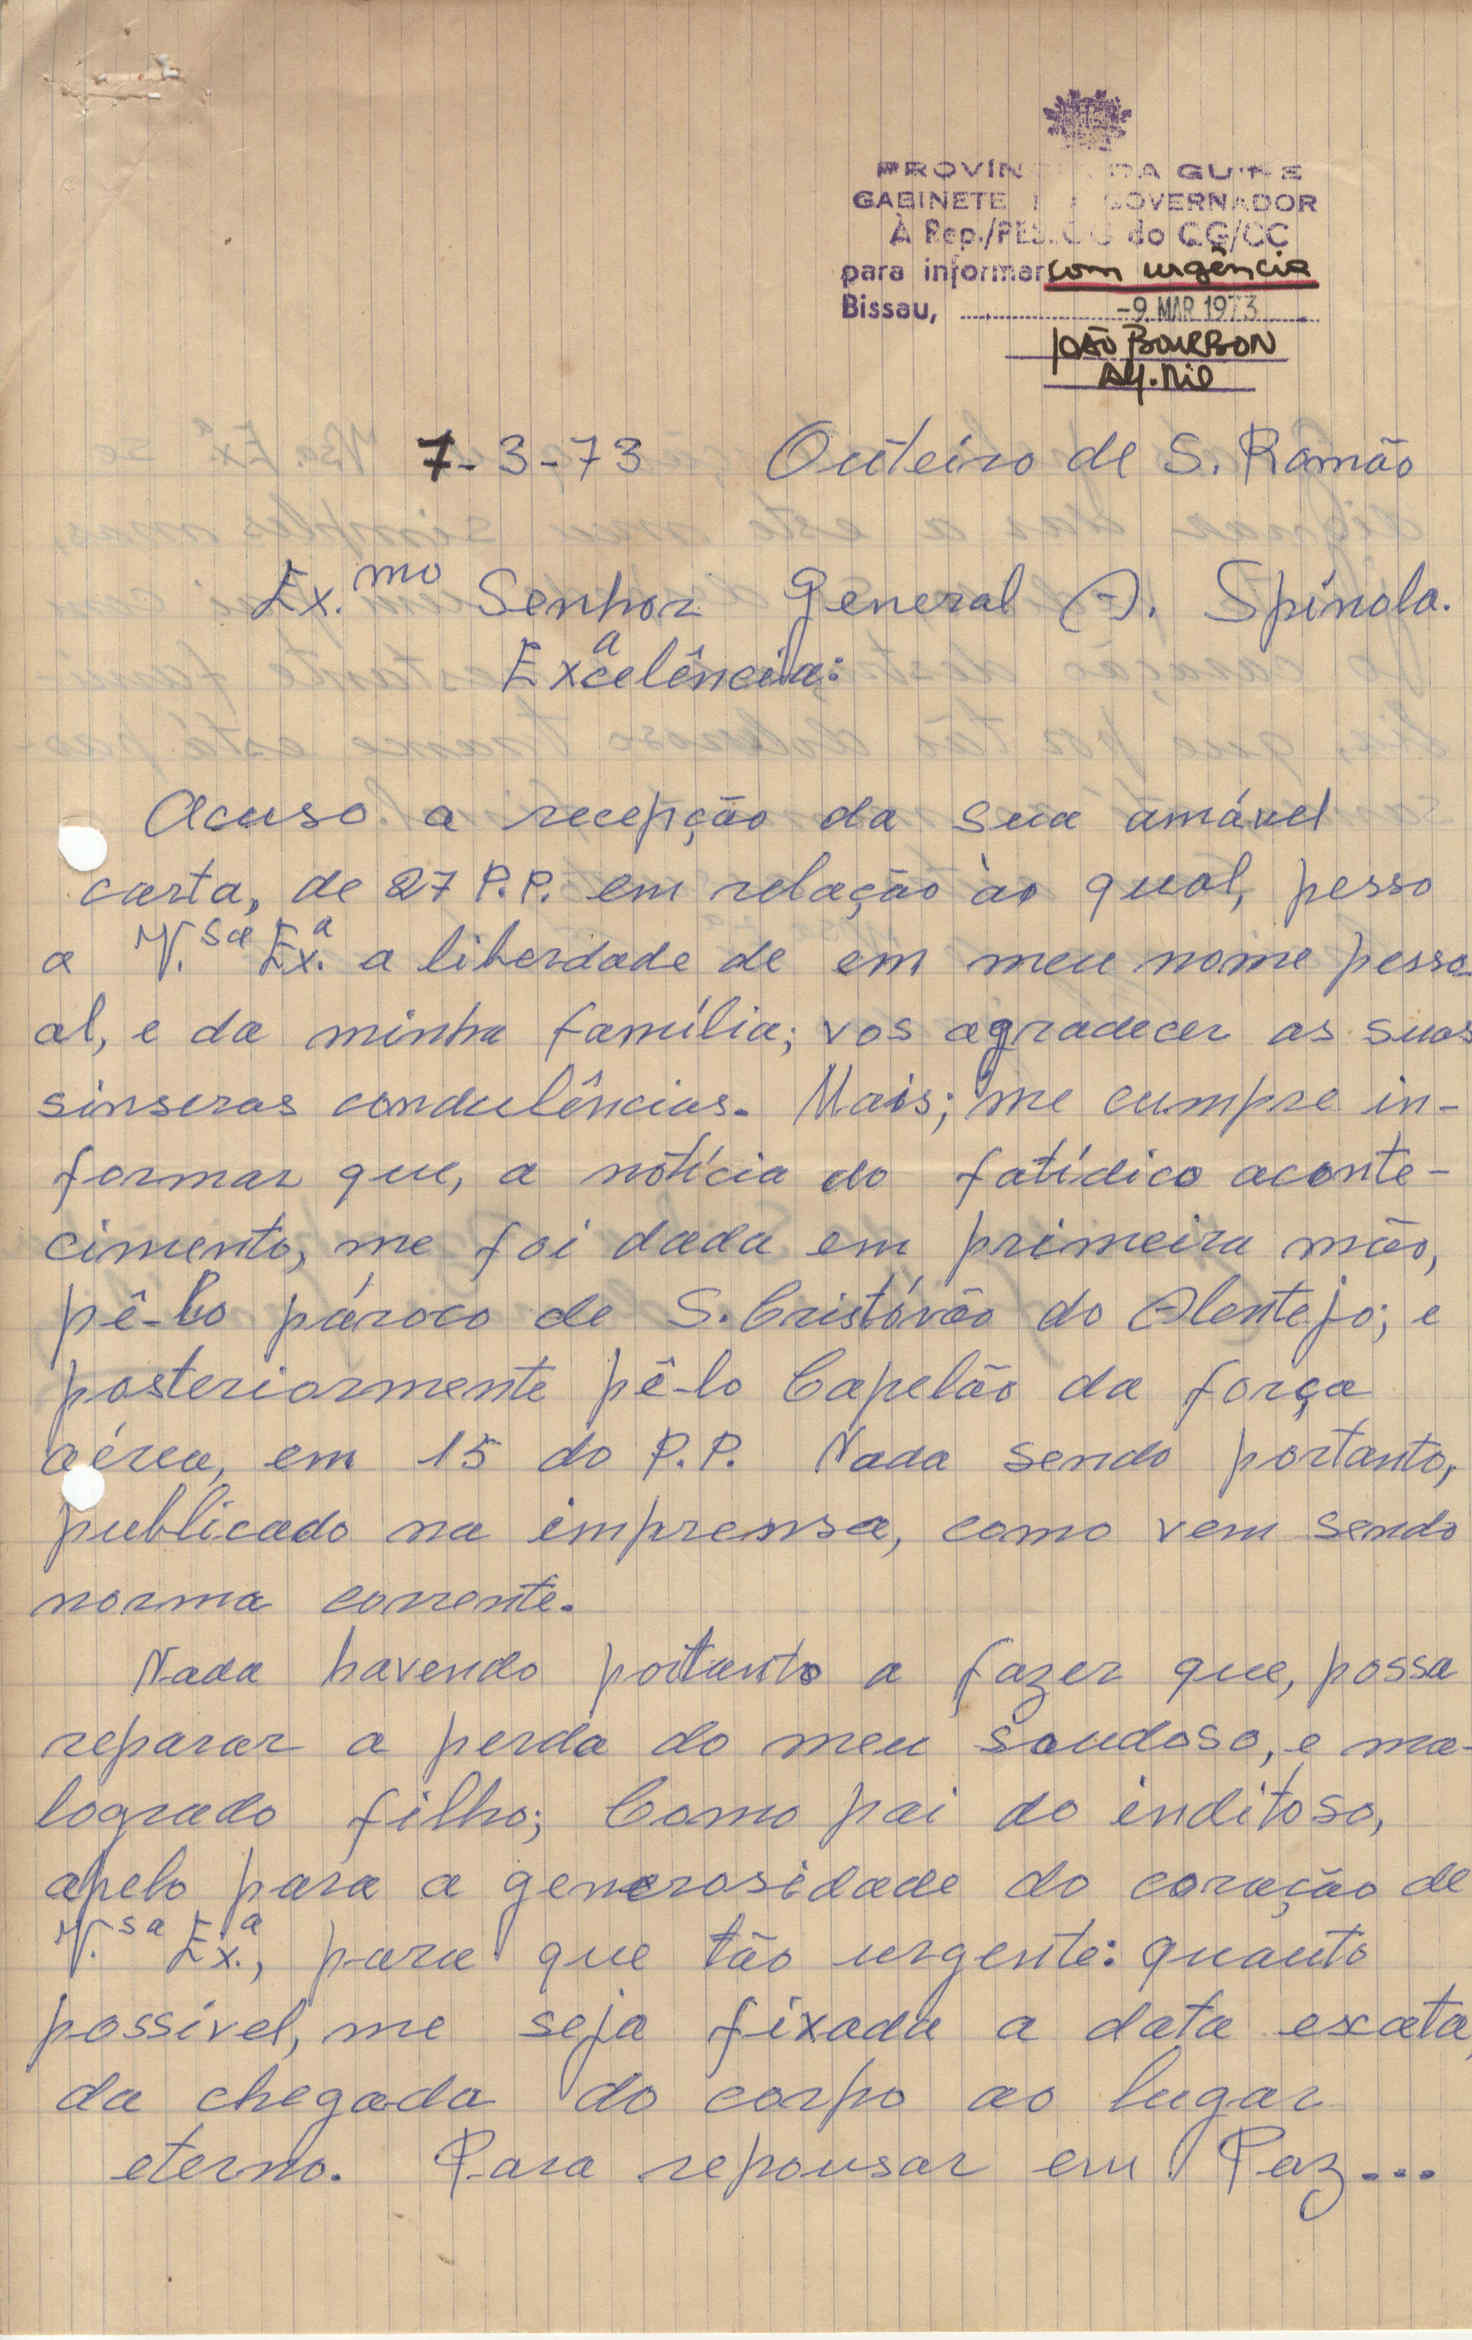 PROVÍN DA GUINE
GABINETE GOVERNADOR
À Rep./PES. do CG/CC
para informar com urgência
Bissau, -9. MAR 1973
JOÃO BOURBON
Alf. Mil
7-3-73 Outeiro de S. Romão
Ex.mo Senhor General A. Spínola.
Exacelência:
Acuso a recepção da sua amável
carta, de 27 P.P. em relação ào qual, pesso
a V.sa Ex.a a liberdade de em meu nome pesso-
al, e da minha família; vos agradecer as suas
sinseras condulências. Mais; me cumpre in-
formar que, a notícia do fatídico aconte-
cimento, me foi dada em primeira mão,
pê-lo pároco de S. Cristóvão do Alentejo; e
posteriormente pê-lo Capelão da força
aérea, em 15 do P.P. Nada sendo portanto,
publicado na imprensa, como vem sendo
norma corrente.
Nada havendo portanto a fazer que, possa
reparar a perda do meu saudoso, e ma-
logrado filho; Como pai do inditoso,
apelo para a generosidade do coração de
V.sa Ex.a, para que tão urgente: quanto
possível, me seja fixada a data exata,
da chegada do corpo ao lugar
eterno. Para repousar em Paz...